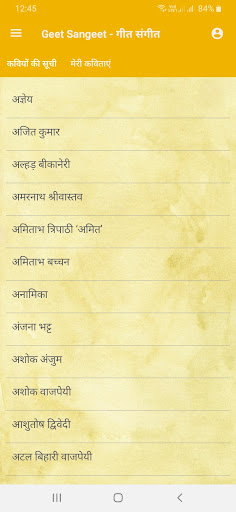 12:45
84%
Geet Sangeet - गीत संगीत
कवियों की सूची मेरी कविताएं
अज्ञेय
अजित कुमार
अल्हड़ बीकानेरी
अमरनाथ श्रीवास्तव
अमिताभ त्रिपाठी ‘अमित’
अमिताभ बच्चन
अनामिका
अंजना भट्ट
अशोक अंजुम
अशोक वाजपेयी
आशुतोष द्विवेदी
अटल बिहारी वाजपेयी